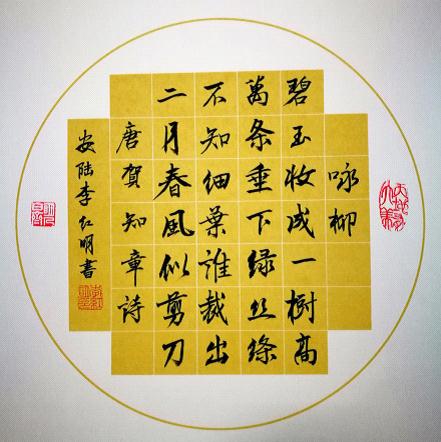 咏柳
碧玉妆成一樹高
萬条垂下绿丝绦
不知细葉誰裁出
二月春風似剪刀
唐賀知章詩
安陆李红明書